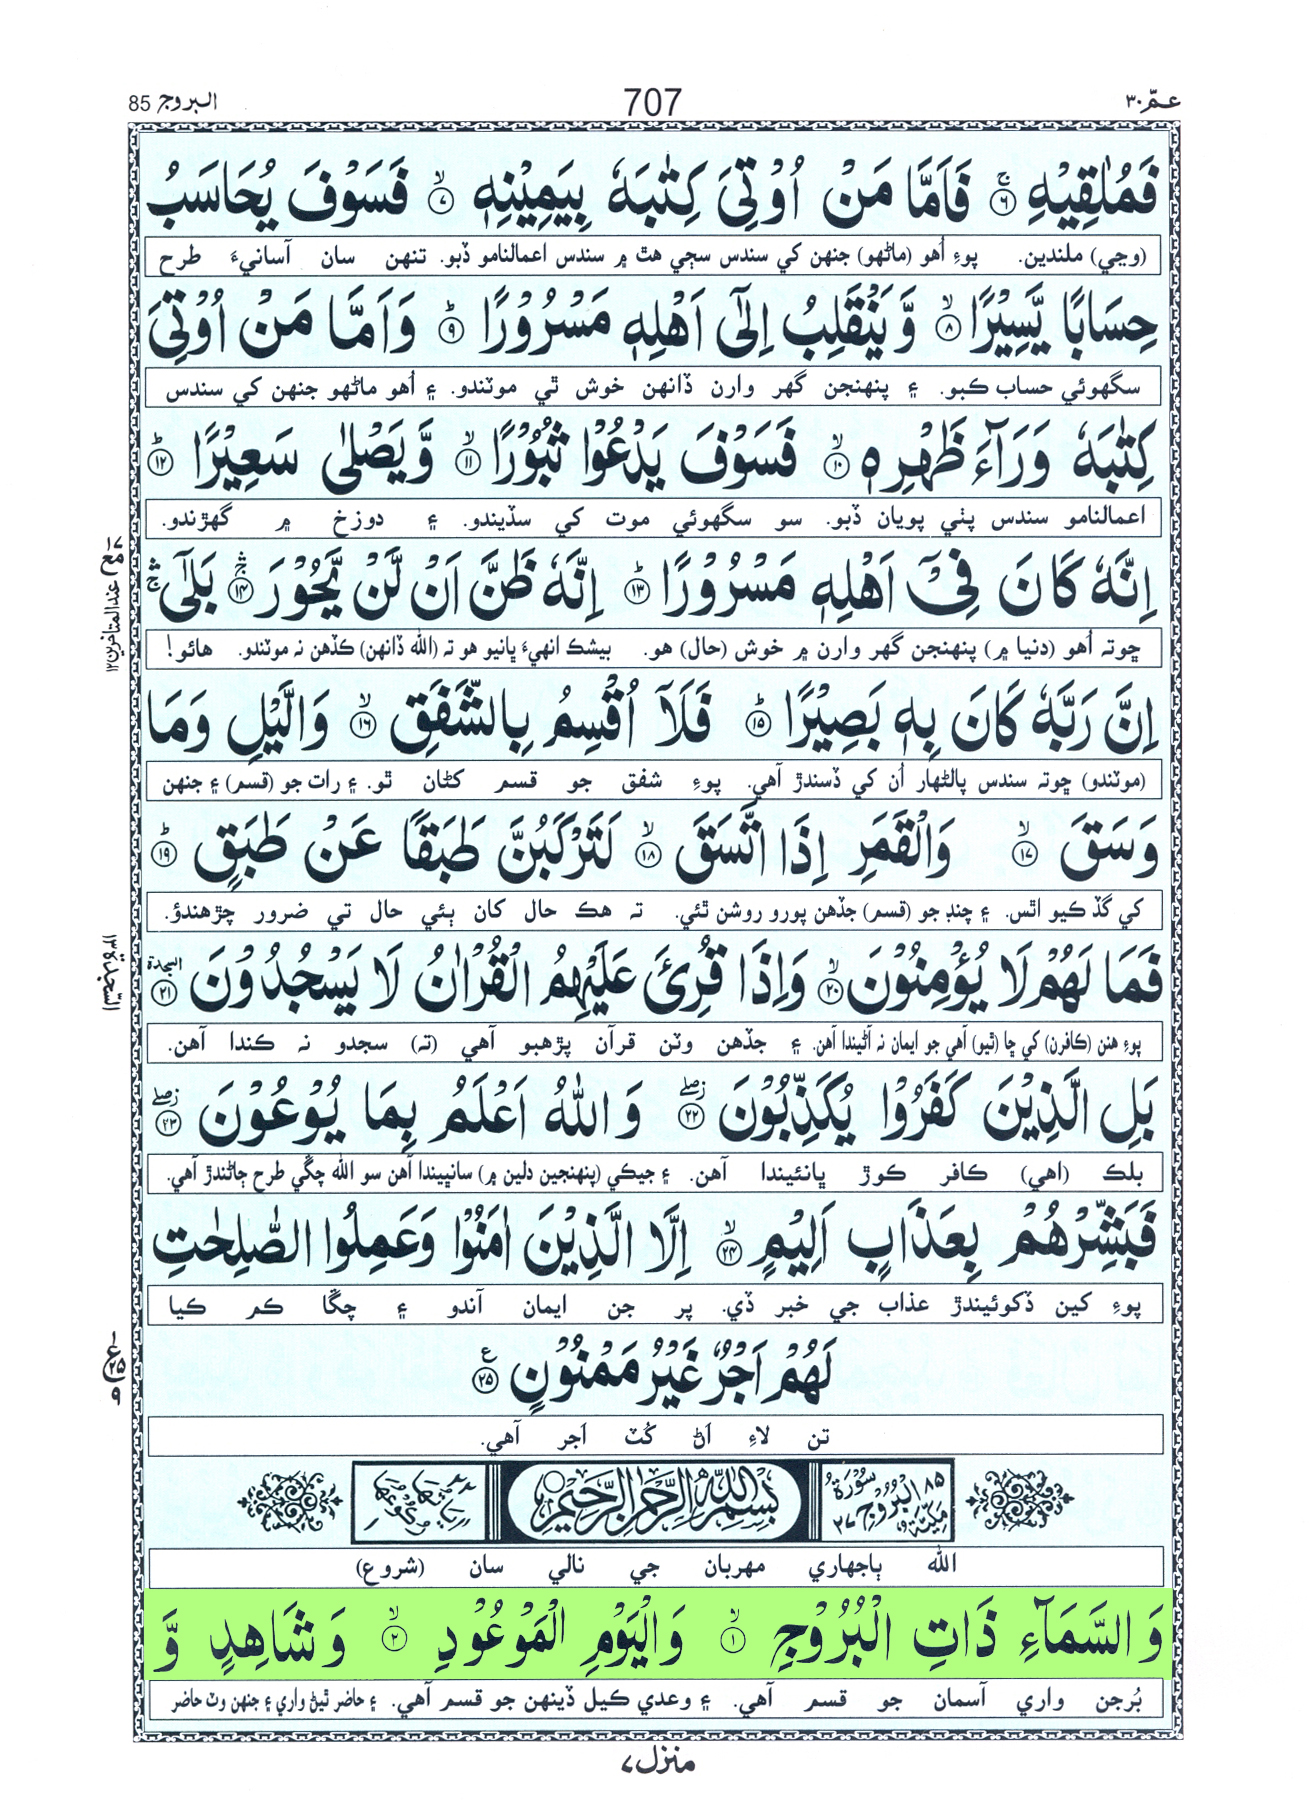 عـمّ ٣٠
707
البروج 85
فَمُلٰقِيْهِ ۚ ﴿٦﴾ فَاَمَّا مَنْ اُوْتِيَ كِتٰبَهٗ بِيَمِيْنِهٖ ۙ ﴿٧﴾ فَسَوْفَ يُحَاسَبُ
(وڃي) ملندين. پوءِ اُهو (ماڻهو) جنهن کي سندس سڄي هٿ ۾ سندس اعمالنامو ڏبو. تنهن سان آسانيءَ طرح
حِسَابًا يَّسِيْرًا ۙ ﴿٨﴾ وَّ يَنْقَلِبُ اِلٰۤى اَهْلِهٖ مَسْرُوْرًا ؕ ﴿٩﴾ وَ اَمَّا مَنْ اُوْتِيَ
سگهوئي حساب ڪبو. ۽ پنهنجن گهر وارن ڏانهن خوش ٿي موٽندو. ۽ اُهو ماڻهو جنهن کي سندس
كِتٰبَهٗ وَرَآءَ ظَهْرِهٖ ۙ ﴿١٠﴾ فَسَوْفَ يَدْعُوْا ثُبُوْرًا ۙ ﴿١١﴾ وَّ يَصْلٰى سَعِيْرًا ؕ ﴿١٢﴾
اعمالنامو سندس پٺي پويان ڏبو. سو سگهوئي موت کي سڏيندو. ۽ دوزخ ۾ گهڙندو.
اِنَّهٗ كَانَ فِيْۤ اَهْلِهٖ مَسْرُوْرًا ؕ ﴿١٣﴾ اِنَّهٗ ظَنَّ اَنْ لَّنْ يَّحُوْرَ ۚۛ ﴿١٤﴾ بَلٰۤى ۚۛ
ڇوته اُهو (دنيا ۾) پنهنجن گهر وارن ۾ خوش (حال) هو. بيشڪ انهيءَ ڀانيو هو ته (الله ڏانهن) ڪڏهن نه موٽندو. هائو!
اِنَّ رَبَّهٗ كَانَ بِهٖ بَصِيْرًا ؕ ﴿١٥﴾ فَلَاۤ اُقْسِمُ بِالشَّفَقِ ۙ ﴿١٦﴾ وَالَّيْلِ وَمَا
(موٽندو) ڇوته سندس پالڻهار اُن کي ڏسندڙ آهي. پوءِ شفق جو قسم کڻان ٿو. ۽ رات جو (قسم) ۽ جنهن
وَسَقَ ۙ ﴿١٧﴾ وَالْقَمَرِ اِذَا اتَّسَقَ ۙ ﴿١٨﴾ لَتَرْكَبُنَّ طَبَقًا عَنْ طَبَقٍ ؕ ﴿١٩﴾
کي گڏ ڪيو اٿس. ۽ چنڊ جو (قسم) جڏهن پورو روشن ٿئي. ته هڪ حال کان ٻئي حال تي ضرور چڙهندؤ.
فَمَا لَهُمْ لَا يُؤْمِنُوْنَ ۙ ﴿٢٠﴾ وَاِذَا قُرِئَ عَلَيْهِمُ الْقُرْاٰنُ لَا يَسْجُدُوْنَ ﴿٢١﴾ السجدة
پوءِ هنن (ڪافرن) کي ڇا (ٿيو) آهي جو ايمان نه آڻيندا آهن. ۽ جڏهن وٽن قرآن پڙهبو آهي (ته) سجدو نه ڪندا آهن.
بَلِ الَّذِيْنَ كَفَرُوْا يُكَذِّبُوْنَ ﴿٢٢﴾ وَ اللّٰهُ اَعْلَمُ بِمَا يُوْعُوْنَ ﴿٢٣﴾
بلڪ (اهي) ڪافر ڪوڙ ڀانئيندا آهن. ۽ جيڪي (پنهنجين دلين ۾) سانڀيندا آهن سو الله چڱي طرح ڄاڻندڙ آهي.
فَبَشِّرْهُمْ بِعَذَابٍ اَلِيْمٍ ۙ ﴿٢٤﴾ اِلَّا الَّذِيْنَ اٰمَنُوْا وَعَمِلُوا الصّٰلِحٰتِ
پوءِ کين ڏکوئيندڙ عذاب جي خبر ڏي. پر جن ايمان آندو ۽ چڱا ڪم ڪيا
لَهُمْ اَجْرٌ غَيْرُ مَمْنُوْنٍ ﴿٢٥﴾ ع
تن لاءِ اَڻ کُٽ اَجر آهي.
٨٥ سُوْرَةُ الْبُرُوْجِ مَكِّيَّةٌ ٢٧
بِسْمِ اللّٰهِ الرَّحْمٰنِ الرَّحِيْمِ
اٰيَاتُهَا ٢٢ رُكُوْعُهَا ١
الله ٻاجهاري مهربان جي نالي سان (شروع)
وَ السَّمَآءِ ذَاتِ الْبُرُوْجِ ۙ ﴿١﴾ وَ الْيَوْمِ الْمَوْعُوْدِ ۙ ﴿٢﴾ وَ شَاهِدٍ وَّ
بُرجن واري آسمان جو قسم آهي. ۽ وعدي ڪيل ڏينهن جو قسم آهي. ۽ حاضر ٿيڻ واري ۽ جنهن وٽ حاضر
منزل ٧
عند المتاخرين ١٢
السجدة ١٣